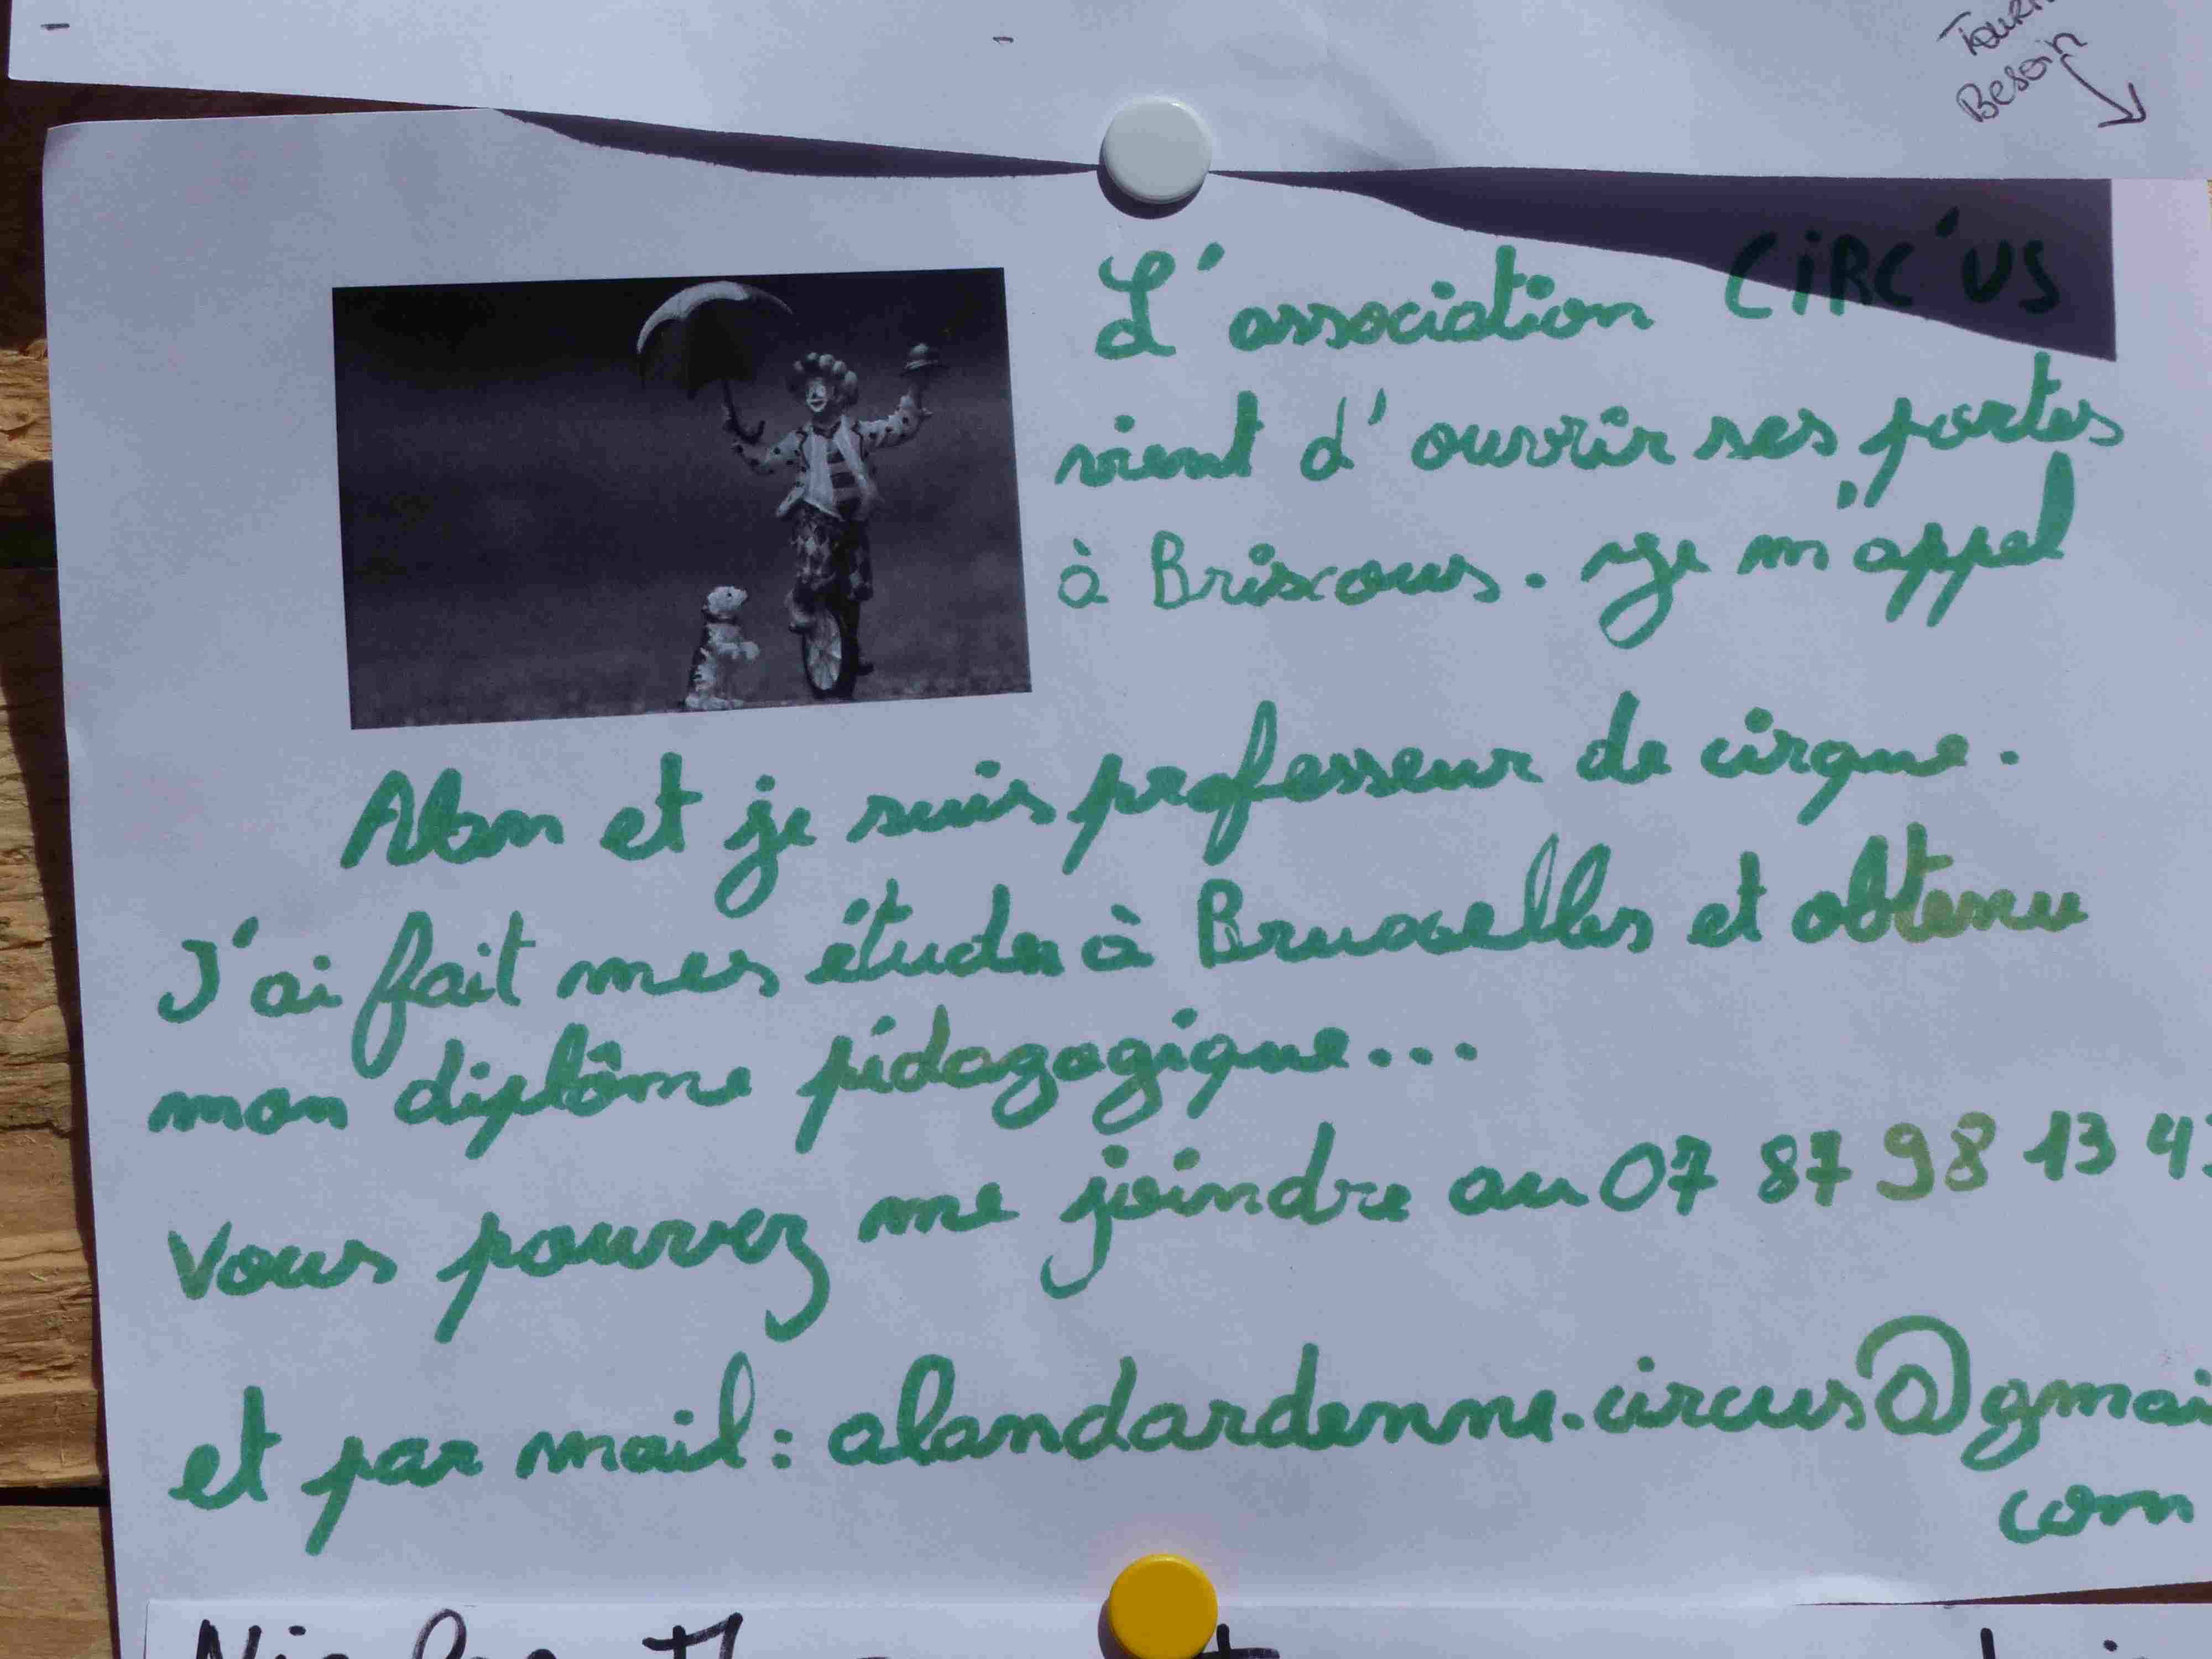 Besoin
L'association CIRC'US
vient d'ouvrir ses portes
à Briscous. Je m'appel
Alan et je suis professeur de cirque.
J'ai fait mes études à Bruxelles et obtenu
mon diplôme pédagogique...
Vous pouvez me joindre au 07 87 98 13 4
et par mail : alandardenne.circus@gmai
com